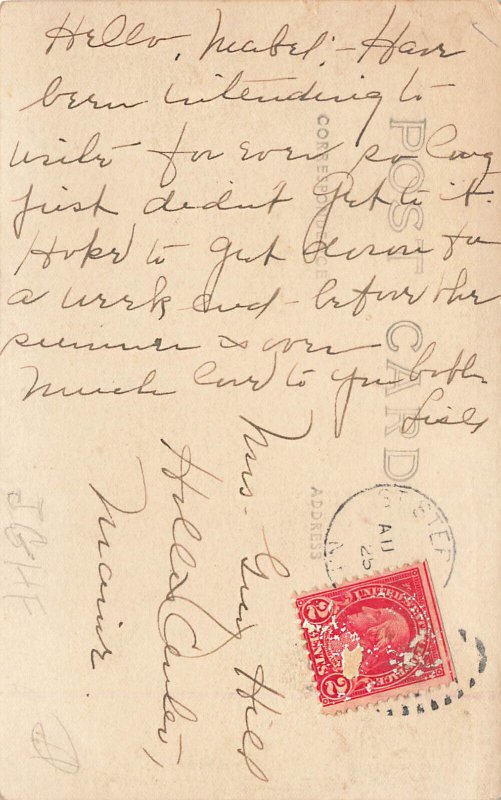 Hello, Mabel:- Have
been intending to
write for ever so long
just didn't get to it.
Hope to get down for
a week end - before the
summer is over
Much love to you both -
POST CARD
CORRESPONDENCE
ADDRESS
Mrs. Guy Hill
Hollis Center,
Maine.
UNITED STATES POSTAGE
2 CENTS 2